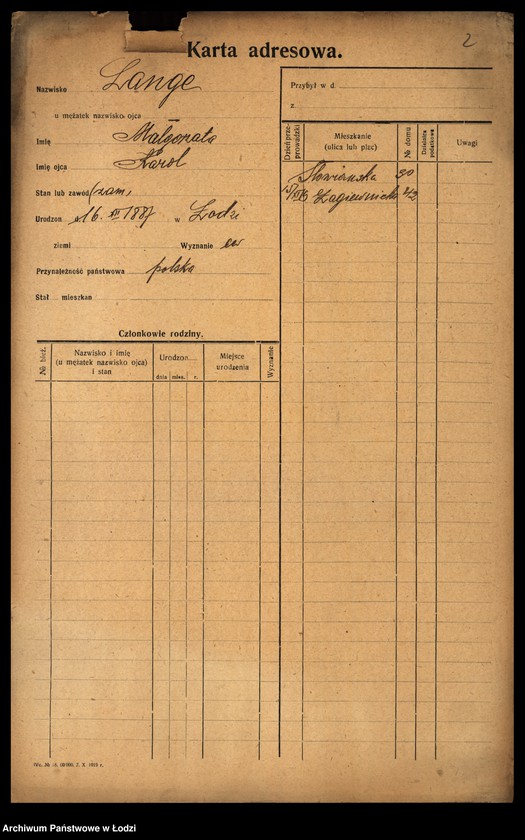 Karta adresowa.
2
Nazwisko Lange
u mężatek nazwisko ojca
Imię Małgorzata
Imię ojca Karol
Stan lub zawód (zam)
Urodzon d. 16. XII 1887 w Łodzi
ziemi Wyznanie ew
Przynależność państwowa polska
Stał mieszkan
Członkowie rodziny.
№ bież.
Nazwisko i imię
(u mężatek nazwisko ojca)
i stan
Urodzon
dnia mies. r.
Miejsce
urodzenia
Wyznanie
Przybył w d.
z
Dzień prze-
prowadzki
Mieszkanie
(ulica lub plac)
№ domu
Dzielnica
podatkowa
Uwagi
90
Łagiewnicka 42
Archiwum Państwowe w Łodzi